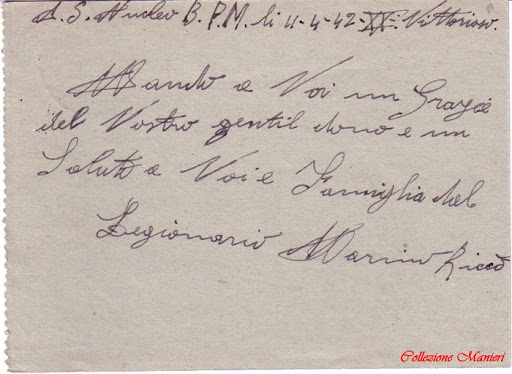 A. S. Nucleo B. P.M. li 4-4-42-XX-Vittorioso.
Mando a Voi un Grazie
del Vostro gentil dono e un
Saluto a Voi e Famiglia dal
Legionario Marino Riccò
Collezione Manieri